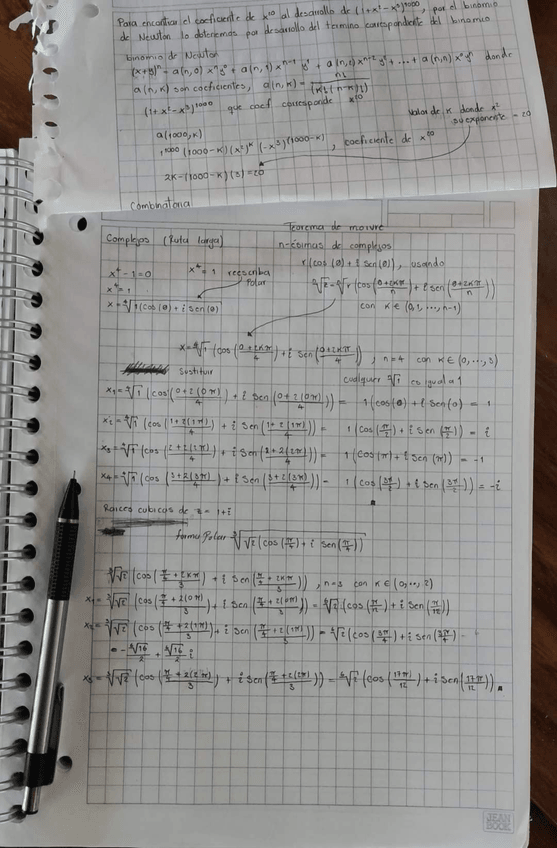 Para encontrar el coeficiente de x^10 al desarrollo de (1+x²-x³)^1000, por el binomio
de Newton lo obtenemos por desarrollo del termino correspondiente del binomio
binomio de Newton
(x+y)^n = a(n,0) x^n y^0 + a(n,1) x^n-1 y^1 + a(n,2) x^n-2 y^2 + ... + a(n,n) x^0 y^n donde
a(n,k) son coeficientes, a(n,k) = n! / (k!(n-k)!)
(1+x²-x³)^1000 que coef corresponde x^10
a(1000,k)
valor de k donde x²
su exponente = 20
1^1000 (1000-k)(x²)^k (-x³)^(1000-k), coeficiente de x^10
2k-(1000-k)(3)=20
Combinatoria
Teorema de moivre
Complejos (Ruta larga)
n-ésimas de complejos
r(cos(θ)+i Sen(θ)), usando
x⁴-1=0
x⁴=1 reescriba
Polar
x⁴=1
x=⁴√1(cos(θ)+i Sen(θ))
ⁿ√z=ⁿ√r(cos((θ+2kπ)/n)+i Sen((θ+2kπ)/n))
con k∈(0,1,...,n-1)
x=⁴√1 (cos((0+2kπ)/4)+i Sen((0+2kπ)/4)), n=4 con k∈(0,...,3)
Sustituir
cualquier ⁿ√1 es igual a 1
x₁=⁴√1 (cos((0+2(0π))/4)+i Sen((0+2(0π))/4)) = 1(cos(0)+i Sen(0) = 1
x₂=⁴√1 (cos((1+2(1π))/4)+i Sen((1+2(1π))/4)) = 1(cos(π/2)+i Sen(π/2)) = i
x₃=⁴√1 (cos((2+2(2π))/4)+i Sen((2+2(2π))/4)) = 1(cos(π)+i Sen(π)) = -1
x₄=⁴√1 (cos((3+2(3π))/4)+i Sen((3+2(3π))/4)) = 1(cos(3π/2)+i Sen(3π/2)) = -i
Raices cubicas de z=1+i
forma Polar ³√(√2(cos(π/4)+i Sen(π/4))
³√√2 (cos((π/4+2kπ)/3)+i Sen((π/4+2kπ)/3)), n=3 con k∈(0,..,2)
x₁=³√√2 (cos((π/4+2(0π))/3)+i Sen((π/4+2(0π))/3)) = ⁶√2 (cos(π/12)+i Sen(π/12))
x₂=³√√2 (cos((π/4+2(1π))/3)+i Sen((π/4+2(1π))/3)) = ⁶√2 (cos(3π/4)+i Sen(3π/4) =
= -⁶√16/2 + ⁶√16/2 i
x₃=³√√2 (cos((π/4+2(2π))/3)+i Sen((π/4+2(2π))/3)) = ⁶√2 (cos(17π/12)+i Sen(17π/12)).
JEAN
BOOK